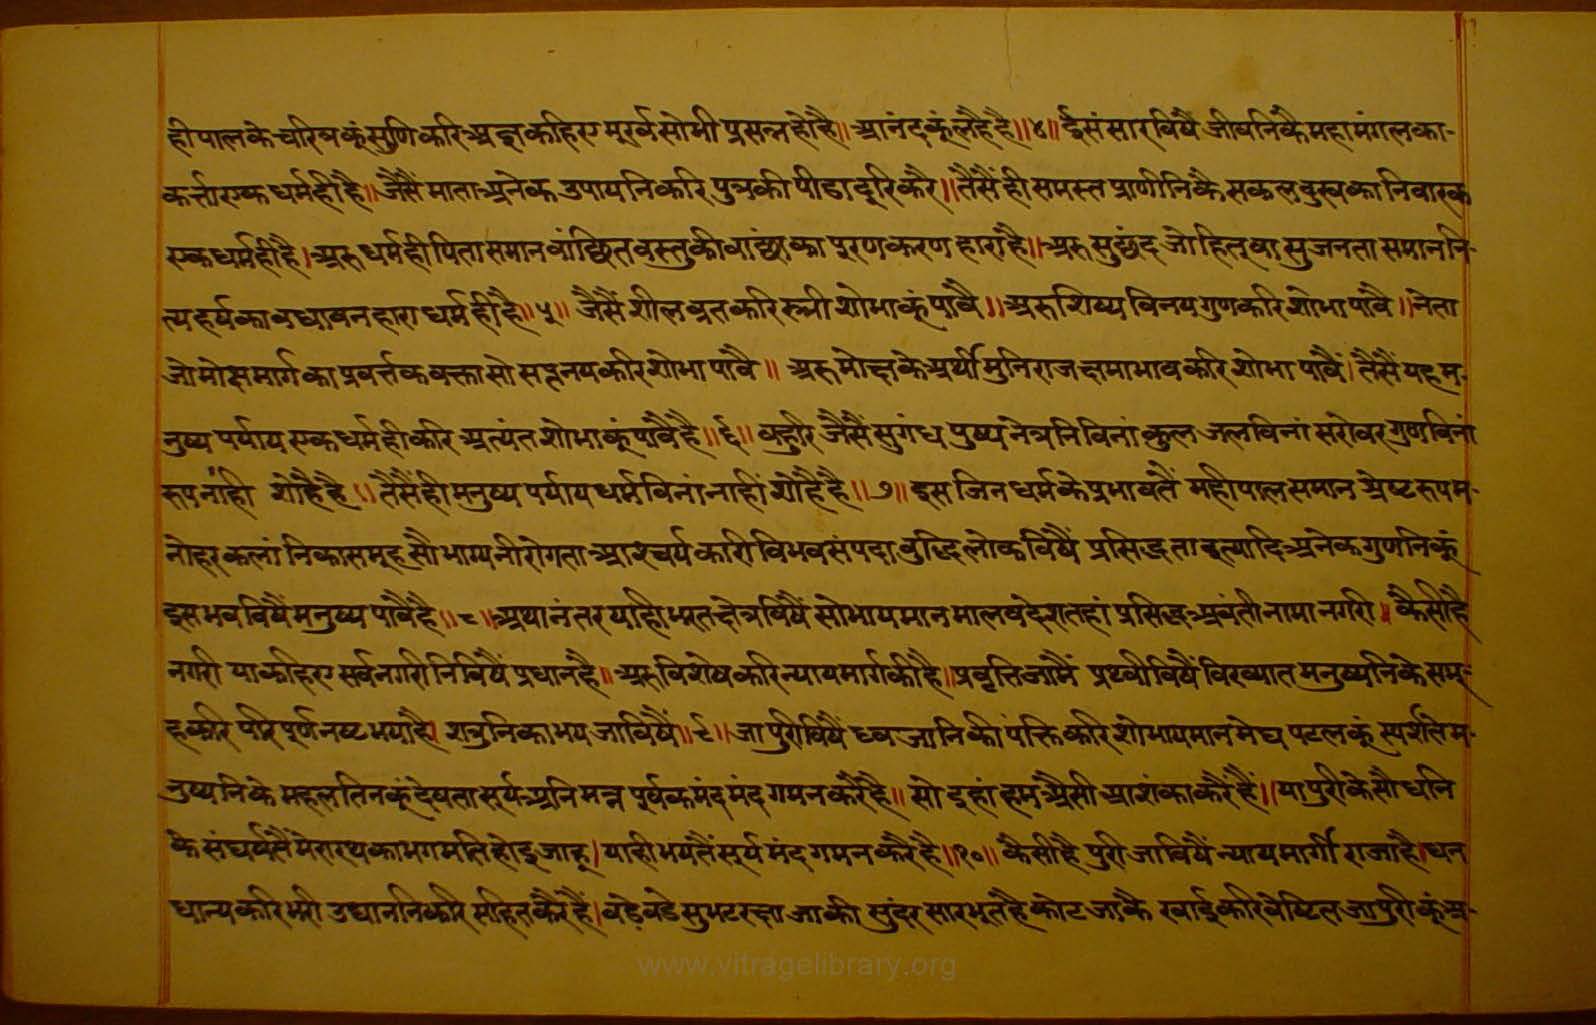 हीपालके चरित्र कूं सुणि करि अज्ञ कहिए मूरर्ष सो भी प्रसन्न होहै॥ आनंदकूं लहै है॥४॥ ईसंसारविषैं जीवनिकै महामंगलका-
कर्त्ता एक धर्महीहै॥ जैसैं माता अनेक उपायनिकरि पुत्रकी पीडा दूरि करै॥ तैसैं ही समस्त प्राणीनिकै सकल दुखका निवारक
एक धर्महीहै। अरु धर्मही पिता समान वांछित वस्तुकी वांछाका पूरण करण हारा है॥ अरु सुछंद जो हितू वा सुजनता समान नि-
त्य हर्षका वधावन हारा धर्म ही है॥५॥ जैसैं शील व्रत करि स्त्री शोभाकूं पावै॥ अरु शिष्य विनय गुण करि शोभा पावै॥ नेता
जो मोक्षमार्गका प्रवर्त्तक वक्ता सो सत्नय करि शोभा पावै॥ अरु मोक्षके अर्थी मुनिराज क्षमाभाव करि शोभा पावैं। तैसैं यह म-
नुष्य पर्याय एक धर्महीकरि अत्यंत शोभाकूं पावै है॥६॥ वहुरि जैसैं सुगंध पुष्प नेत्रनि विनां कुल जल विनां सरोवर गुण विनां
रूप नांही शोहै है॥ तैसैंही मनुष्य पर्याय धर्म विनां नाहीं शोहै है॥७॥ इस जिन धर्मके प्रभावतैं महीपाल समान श्रेष्ट रूप म-
नोहर कलांनिका समूह सौभाग्य नीरोगता आश्चर्यकारी विभव संपदा वुद्धि लोकविषैं प्रसिद्धता इत्यादि अनेक गुणनिकूं
इस भवविषैं मनुष्य पावै है॥८॥ अथानंतर याही भरतक्षेत्रविषैं सोभायमान मालवदेश तहां प्रसिद्ध अवंती नामा नगरी। कैसी है
नगरी या कहिए सर्वनगरीनिविषैं प्रधान है॥ अरु विशेष करि न्यायमार्गकी है॥ प्रवृत्ति जामैं प्रथ्वीविषैं विख्यात मनुष्यनिके समू-
ह करि परिपूर्ण नष्ट भया है। शत्रुनिका भय जाविषैं॥९॥ जा पुरीविषैं ध्वजानिकी पंक्ति करि शोभायमान मेघ पटलकूं स्पर्शते म-
नुष्यनिके महल तिनकूं देषता सूर्य अनिमन्न पूर्वक मंद मंद गमन करै है॥ सो इहां हम अैसी आशंका करैं हैं॥ या पुरीके सौधनि
के संघर्षतैं मेरा रथका भग मति होइ जाहू। याही भयतैं सूर्य मंद गमन करै है॥१०॥ कैसी है पुरी जाविषैं न्यायमार्गी राजा है। धन
धान्य करि भरी उद्याननि करि सहित कैरहैं। वडे वडे सुभट रक्षा जाकी सुंदर सारभूत है कोट जाकै खाई करि वेष्टित जा पुरीकूं अ-
www.vitragelibrary.org